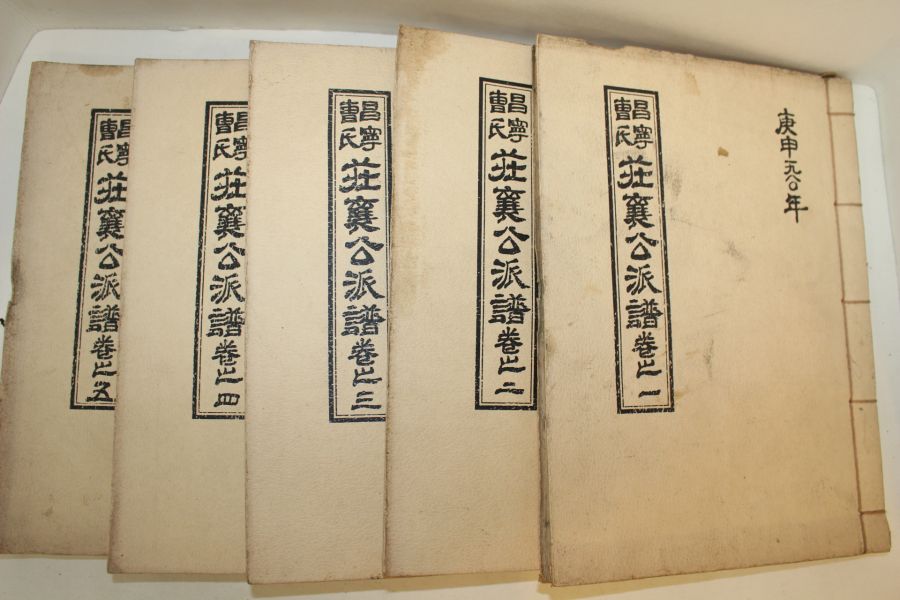 庚申一九八〇年
昌寧
曺氏
莊襄公派譜卷之一
昌寧
曺氏
莊襄公派譜卷之二
昌寧
曺氏
莊襄公派譜卷之三
昌寧
曺氏
莊襄公派譜卷之四
昌寧
曺氏
莊襄公派譜卷之五